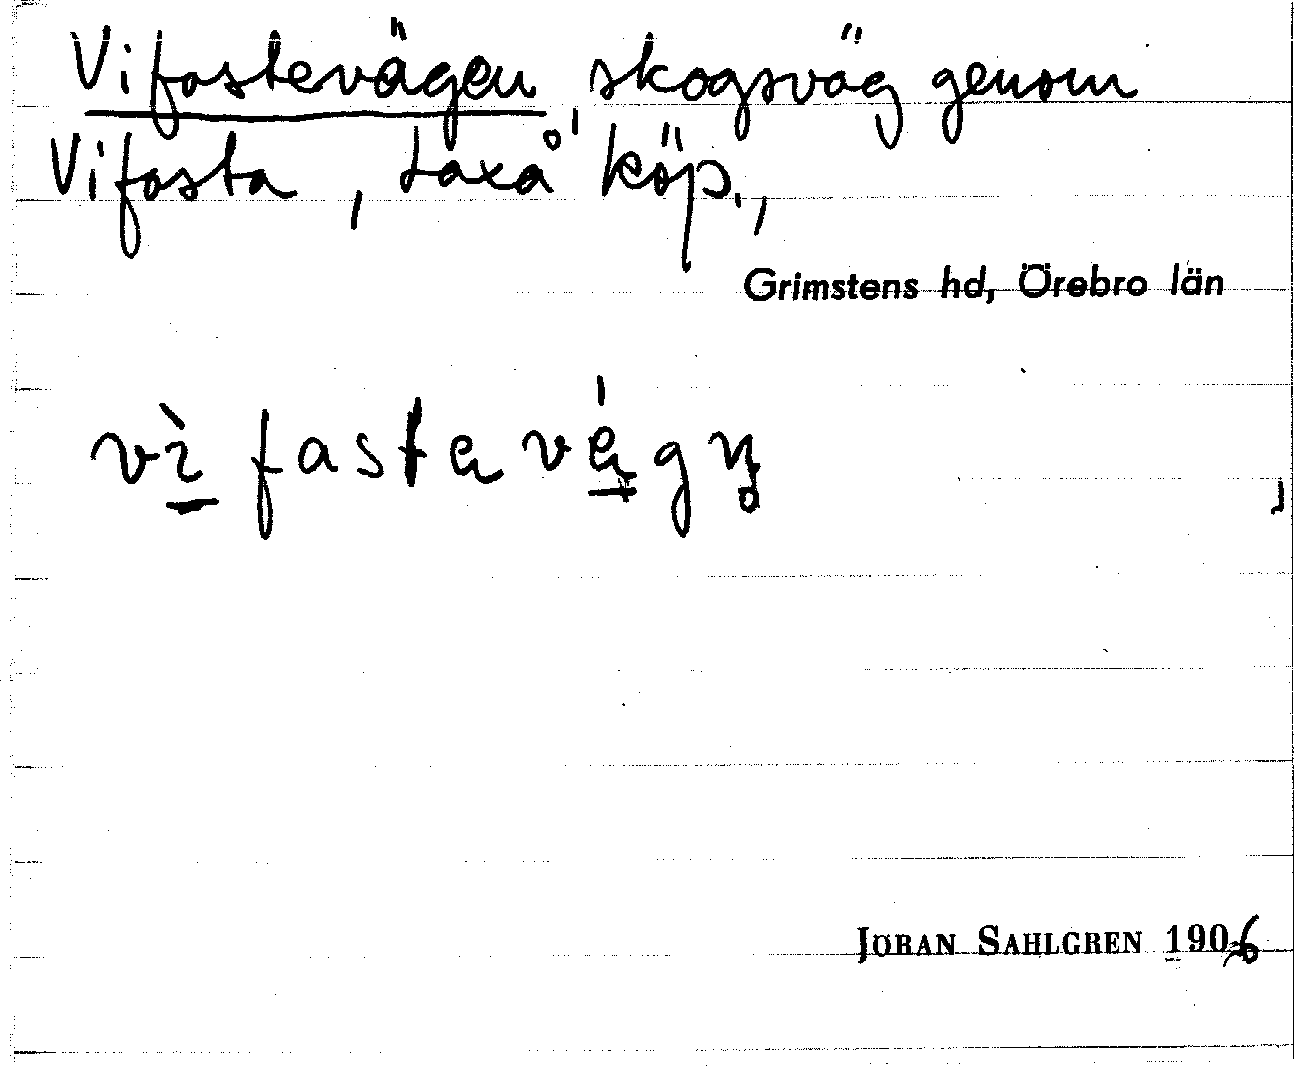 Vifastevägen, skogsväg genom
Vifasta, Laxå köp.,
Grimstens hd, Örebro län
JÖRAN SAHLGREN 1906